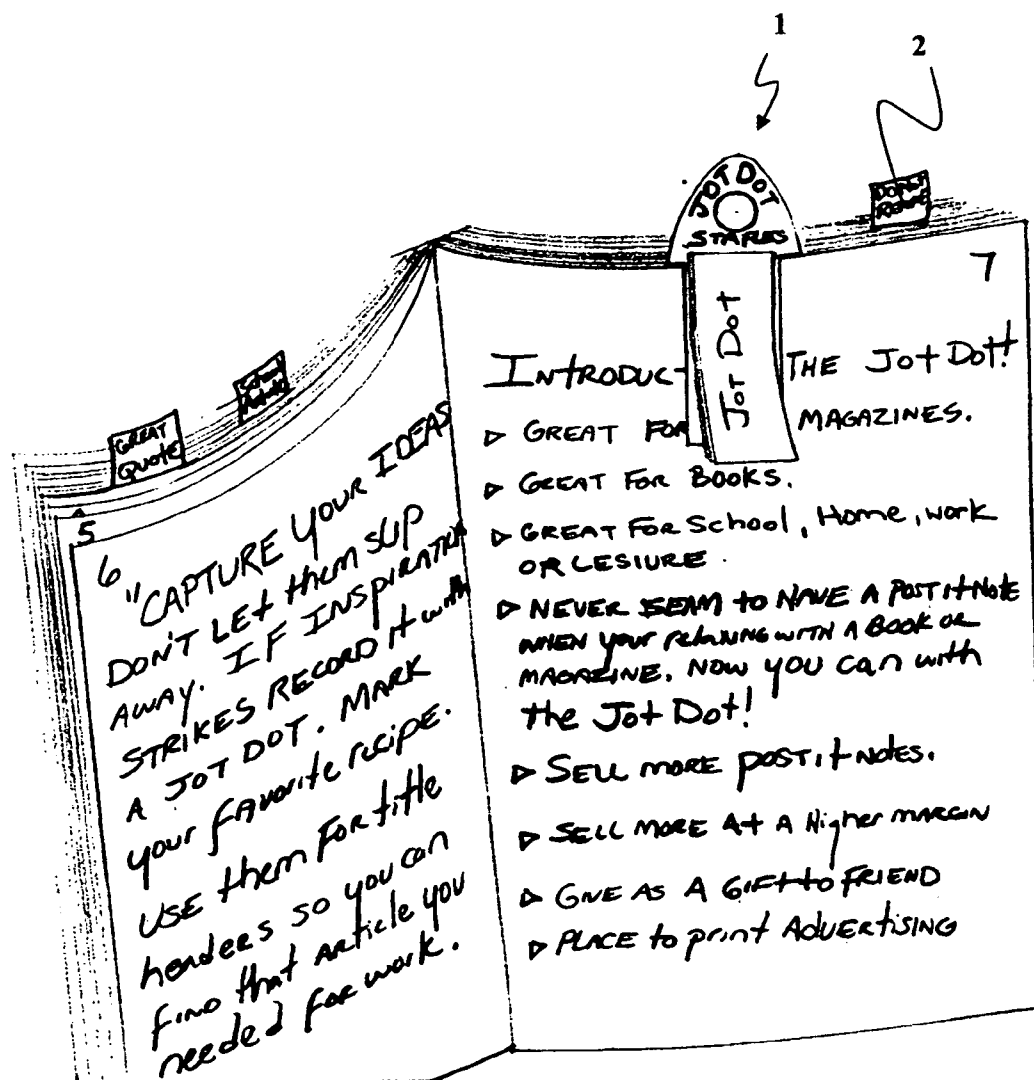 1
2
JOT DOT
STAPLES
Jot Dot
GREAT
Quote
School
5
6
7
"CAPTURE YOUR IDEAS
DON'T LET them SLIP
AWAY. IF INSPIRATION
STRIKES RECORD it with
A JOT DOT. MARK
your favorite recipe.
USE them FOR title
headers so you can
FIND that ARticle you
needed for work.
INTRODUC THE Jot Dot!
GREAT FOR MAGAZINES.
GREAT FOR BOOKS.
GREAT FOR School, Home, work
OR LESIURE.
NEVER SEAM to HAVE A POST it NOTE
WHEN your relaxing WITH A BOOK OR
MAGAZINE. NOW you can with
the Jot Dot!
SELL MORE POST it NOTES.
SELL MORE At A Higher MARGIN
GIVE AS A GIFT to FRIEND
PLACE to print ADVERTISING